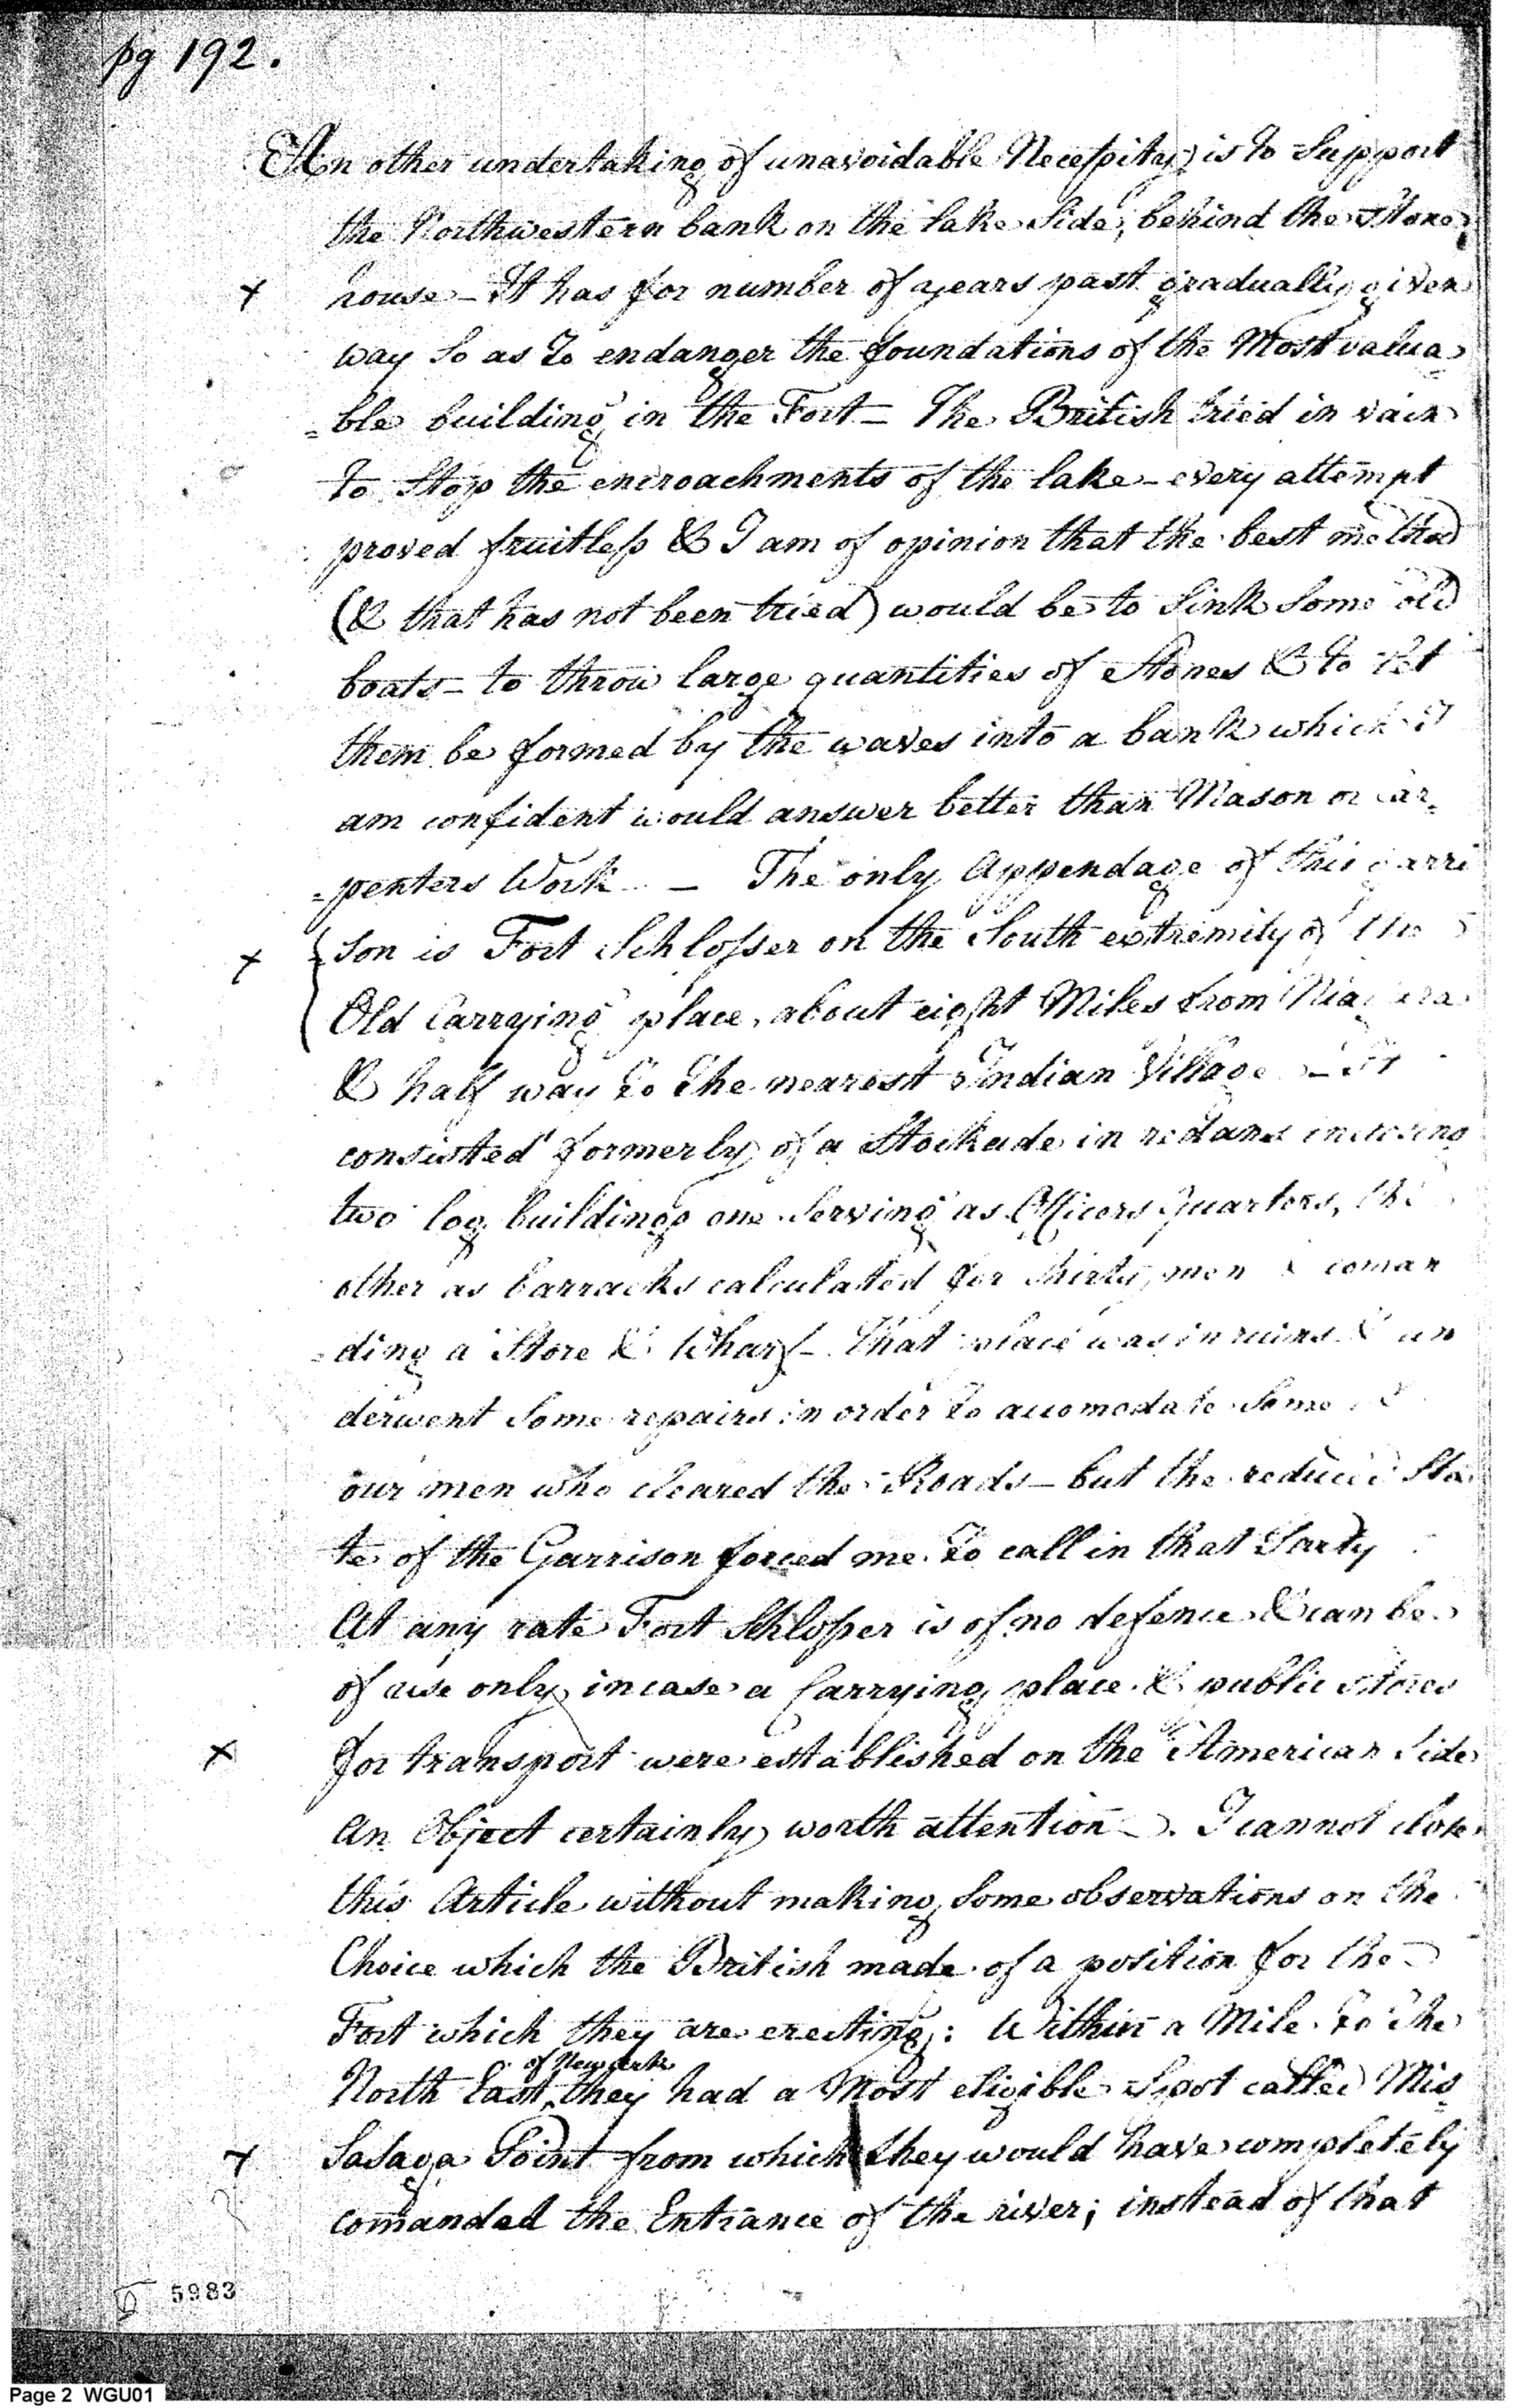 pg 192.
An other undertaking of unavoidable Necessity is to Support
the Northwestern bank on the lake Side, behind the Stone
house - It has for number of years past gradually given
way So as to endanger the foundations of the Most valua
=ble building in the Fort - The British tried in vain
to Stop the encroachments of the lake - every attempt
proved fruitless & I am of opinion that the best method
(& that has not been tried) would be to Sink Some old
boats - to throw large quantities of Stones & to let
them be formed by the waves into a bank which I
am confident would answer better than Mason or Car=
=penters Work - The only Appendage of this garri
=son is Fort Schlosser on the South extremity of the
Old Carrying place, about eight Miles from Niagara
& half way to the nearest Indian Village - It
consisted formerly of a Stockade in redans inclosing
two log buildings one Serving as Officers Quarters, the
other as barracks calculated for thirty men & coman
=ding a Store & Wharf - that place was in ruins & un
derwent Some repairs in order to accomodate Some
our men who cleared the Roads - but the reduced Sta
te of the Garrison forced me to call in that Party
At any rate Fort Schlosser is of no defence & can be
of use only incase a Carrying place & public Stores
for transport were established on the American Side
An Object certainly worth attention -. I cannot close
this Article without making Some observations on the
Choice which the British made of a position for the
Fort which they are erecting: Within a Mile to the
of Newark
North East, they had a Most eligible Spot called Mis
Sasaga Point from which they would have completely
comanded the Entrance of the river; instead of that
5983
Page 2 WGU01